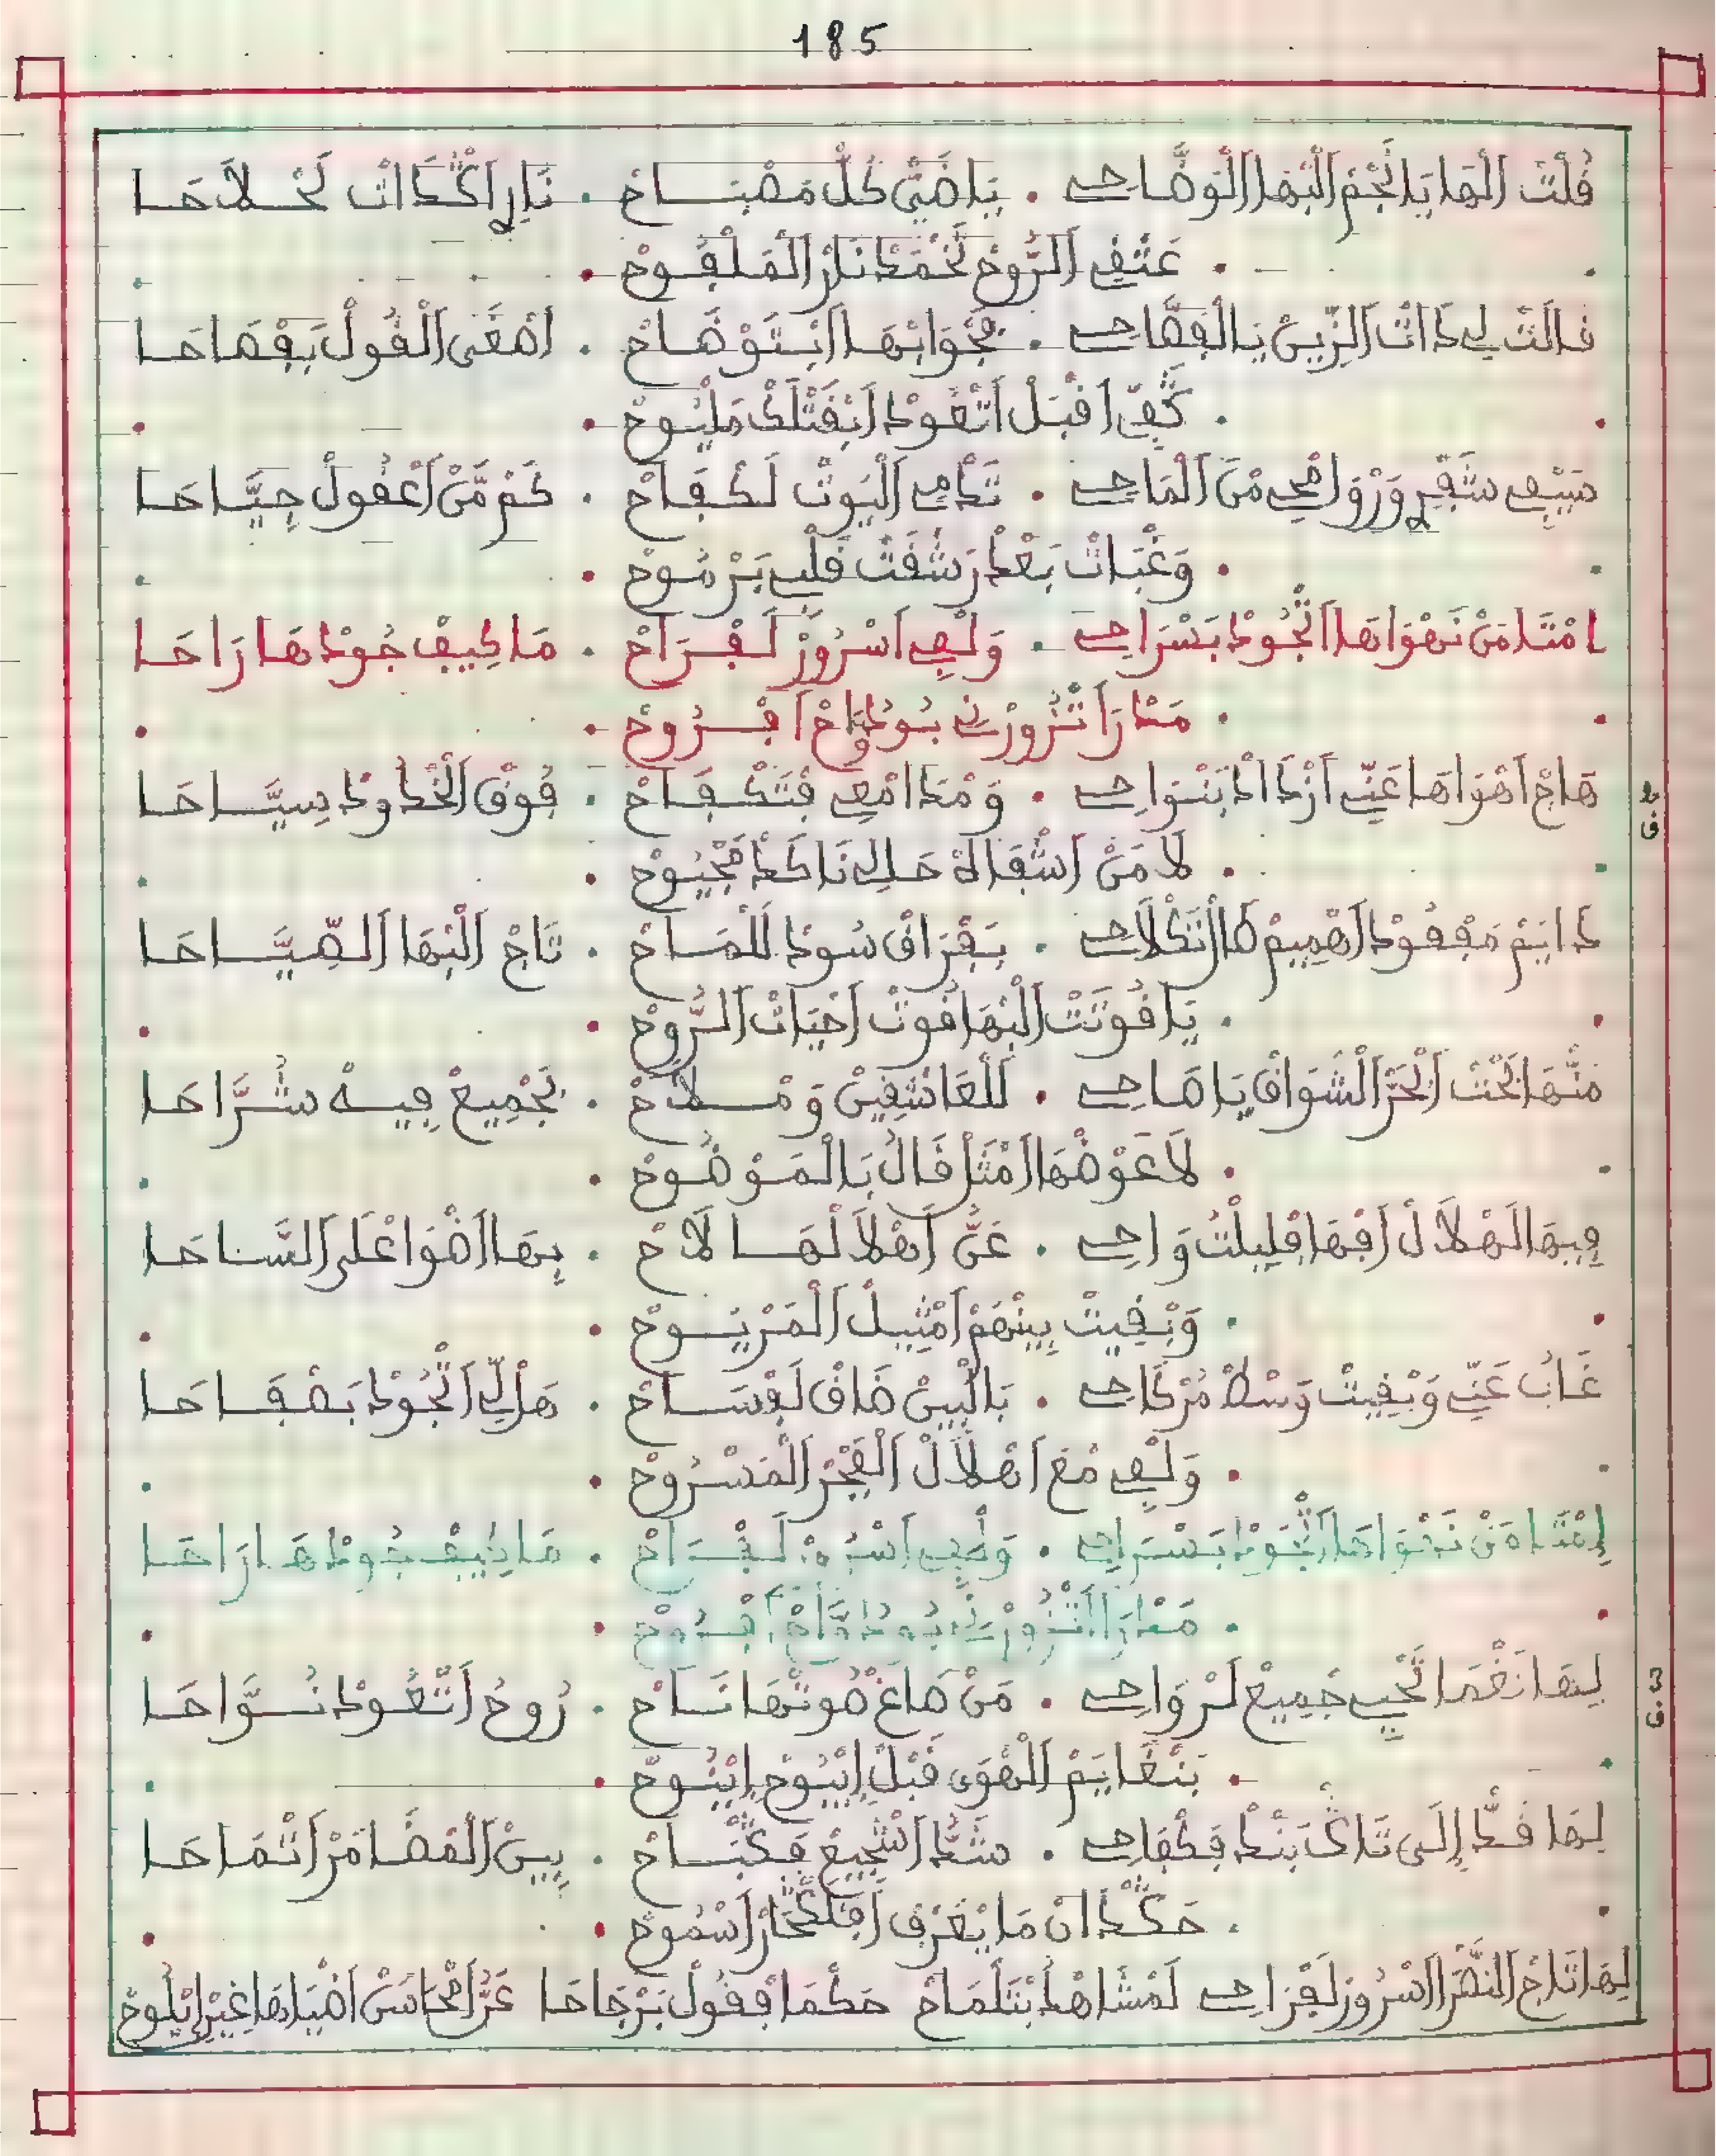 185
قُلْتْ الْهَا يَا نَجْمْ الْبْهَا الْوَضَّاحِي . يَا ضَيّْ كُلّْ مَصْبَاحْ . نَارِي اكْدَاتْ لَحْلَاحَا
. عَتْقِي الرُّوحْ تَخْمَدْ نَارْ الْمَلْقُوحْ .
قَالَتْ لِي ذَاتْ الزِّينْ يَا الْفَصَّاحِي . بَجْوَابْهَا ابْتَوْضَاحْ . اصْغَى الْقُولْ بَفْصَاحَا
. كُفّْ اقْبَلْ اتْعُودْ ابْقَتْلَكْ مَلْيُوحْ .
سَيْفِي شْقِيرْ وَرْوَامْحِي مَنْ الْمَاحِي . تَدْمِي الْيُوتْ لَكْفَاحْ . كَمْ مَّنْ اعْقُولْ جِيَّاحَا
. وَغْبَاتْ بَعْدْ رَشْقَتْ قَلْبِي بَرْمُوحْ .
امْتَا مَنْ نَهْوَاهَا اتْجُودْ بَسْرَاحِي . وَلْفِي اسْرُورْ لَفْرَاحْ . مَا كِيفْ جُودْهَا رَاحَا
. مَدْرَا تْزُورْنِي بُودْوَّاحْ افْرُوحْ .
هَاجْ اهْوَاهَا عَنِّي ازْدَادْ بَنْوَاحِي . وَمْدَامْعِي فْتَكْفَاحْ . فُوقْ الْخْدُودْ سِيَّاحَا
ق 2
. لَا مَنْ اشْفَا لَهْ حَالِي نَاكَدْ مَجْيُوحْ .
دَايَمْ مَفْقُودْ اهْمِيمْ طَارْ تَكْلَاحِي . بَفْرَاقْ سُودْ لَلْمَاحْ . تَاجْ الْبْهَا الصِّيَّاحَا
. يَا قُوتَتْ الْبْهَا قُوتْ احْيَاتْ الرُّوحْ .
مَنْهَا بَحْتْ ابْحَرّْ الشْوَاقْ يَا صَاحِي . لَلْعَاشْقِينْ وَمْلَاحْ . بَجْمِيعْ فِيهْ شْرَّاحَا
. لَا عَوْضْهَا امْثَلْ قَالُ بَالْمَوْضُوحْ .
فِيهَا لَهْلَالْ افْهَا فْلِيلْتُ وَاحِي . عَنّْ اهْلَا لْهَا لَاحْ . بِهَا اضْوَا عْلَى السَّاحَا
. وَبْقِيتْ بِينْهُمْ امْثِيلْ الْمَرْيُوحْ .
غَابْ عَنِّي وَبْقِيتْ وَسْطْ مُرْكَاحِي . بَالْبِينْ ضَاقْ لَوْسَاحْ . هَلْ لِي اتْجُودْ بَصْفَاحَا
. وَلْفِي مْعَ اهْلَالْ الْفْجَرْ الْمَسْرُوحْ .
امْتَا مَنْ نَهْوَاهَا اتْجُودْ بَسْرَاحِي . وَلْفِي اسْرُورْ لَفْرَاحْ . مَا كِيفْ جُودْهَا رَاحَا
. مَدْرَا اتْزُورْنِي بُودْوَّاحْ افْرُوحْ .
لِيهَا نَغْمَا تَحْيِي جْمِيعْ لَرْوَاحِي . مَنْ صَاغْ صُوتْهَا نَاحْ . رُوحُ اتْعُودْ نُوَّاحَا
ق 3
. بَنْغَايَمْ الْهْوَى قْبَلْ ايْبُوحْ ايْنُوحْ .
لِهَا قَدّْ إِلَى تَاكْ بَنْدْ فَكْفَاحِي . شَدُّ اشْجِيعْ فَكْتَاحْ . بِينْ الْمْضَامَرْ اتْمَاحَا
. حَكْدَانْ مَا يَعْرَفْ افْلَكْحَارْ اسْمُوحْ .
لِهَا تَاجْ النْصَرْ اسْرُورْ لَفْرَاحِي لَمْشَاهْدْ بَتْلَمَاحْ حَكْمَا فْقُولْ بَرْجَاحَا عَزّْ امْحَاسَنْ اضْيَاهَا غِيرْ ايْلُوحْ